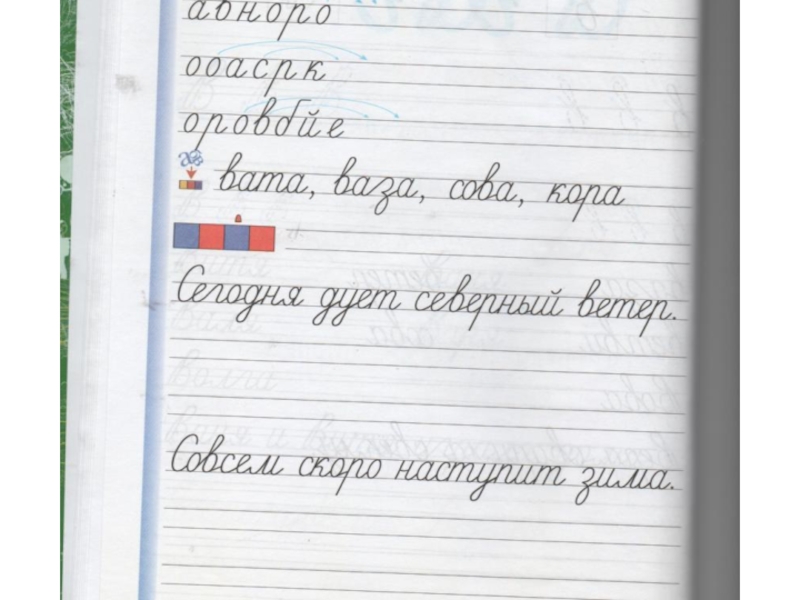 авноро
ооасрк
оровбйе
вата, ваза, сова, кора
Сегодня дует северный ветер.
Совсем скоро наступит зима.